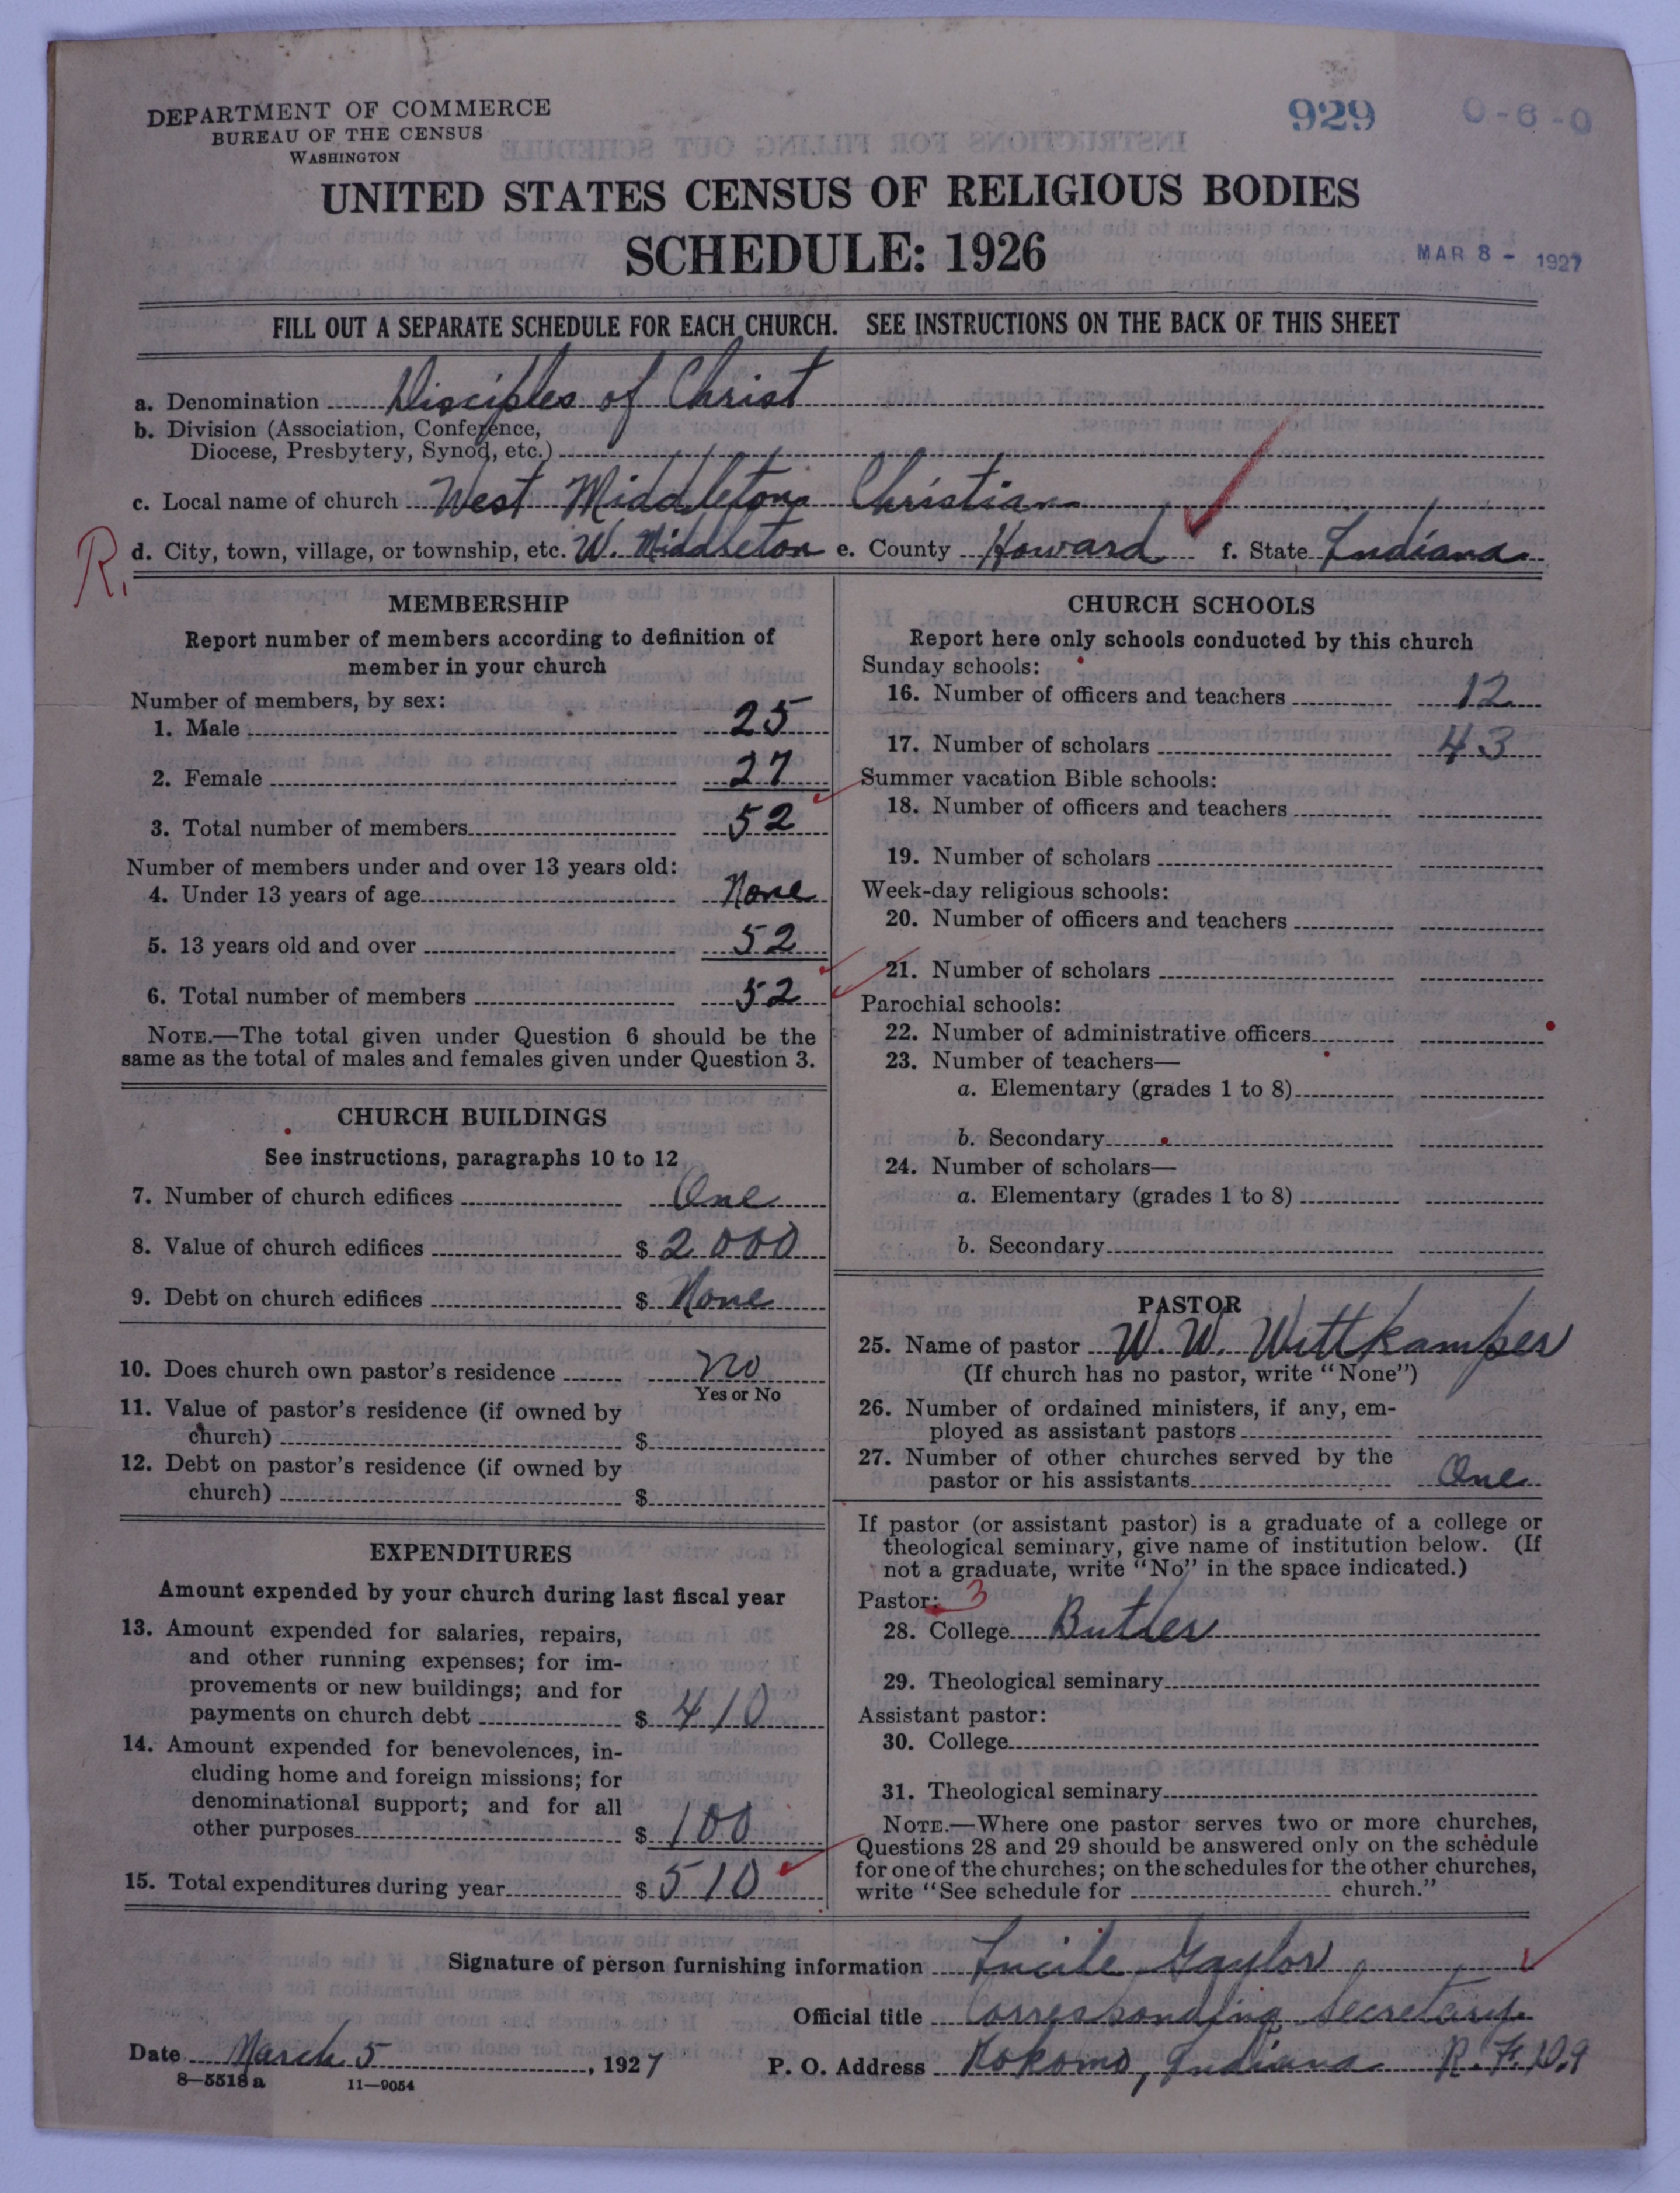 DEPARTMENT OF COMMERCE
BUREAU OF THE CENSUS
WASHINGTON
929
0-6-0
UNITED STATES CENSUS OF RELIGIOUS BODIES
SCHEDULE: 1926
MAR 8 - 1927
FILL OUT A SEPARATE SCHEDULE FOR EACH CHURCH. SEE INSTRUCTIONS ON THE BACK OF THIS SHEET
a. Denomination Disciples of Christ
b. Division (Association, Conference,
Diocese, Presbytery, Synod, etc.)
c. Local name of church West Middleton Christian
R.
d. City, town, village, or township, etc. W. Middleton e. County Howard f. State Indiana
MEMBERSHIP
Report number of members according to definition of
member in your church
Number of members, by sex:
1. Male 25
2. Female 27
3. Total number of members 52
Number of members under and over 13 years old:
4. Under 13 years of age None
5. 13 years old and over 52
6. Total number of members 52
NOTE.—The total given under Question 6 should be the
same as the total of males and females given under Question 3.
CHURCH BUILDINGS
See instructions, paragraphs 10 to 12
7. Number of church edifices One
8. Value of church edifices $ 2000
9. Debt on church edifices $ None
10. Does church own pastor's residence no
Yes or No
11. Value of pastor's residence (if owned by
church) $
12. Debt on pastor's residence (if owned by
church) $
EXPENDITURES
Amount expended by your church during last fiscal year
13. Amount expended for salaries, repairs,
and other running expenses; for im-
provements or new buildings; and for
payments on church debt $ 410
14. Amount expended for benevolences, in-
cluding home and foreign missions; for
denominational support; and for all
other purposes $ 100
15. Total expenditures during year $ 510
CHURCH SCHOOLS
Report here only schools conducted by this church
Sunday schools:
16. Number of officers and teachers 12
17. Number of scholars 43
Summer vacation Bible schools:
18. Number of officers and teachers
19. Number of scholars
Week-day religious schools:
20. Number of officers and teachers
21. Number of scholars
Parochial schools:
22. Number of administrative officers
23. Number of teachers—
a. Elementary (grades 1 to 8)
b. Secondary
24. Number of scholars—
a. Elementary (grades 1 to 8)
b. Secondary
PASTOR
25. Name of pastor W. W. Wittkamper
(If church has no pastor, write "None")
26. Number of ordained ministers, if any, em-
ployed as assistant pastors
27. Number of other churches served by the
pastor or his assistants One
If pastor (or assistant pastor) is a graduate of a college or
theological seminary, give name of institution below. (If
not a graduate, write "No" in the space indicated.)
Pastor: 3
28. College Butler
29. Theological seminary
Assistant pastor:
30. College
31. Theological seminary
NOTE.—Where one pastor serves two or more churches,
Questions 28 and 29 should be answered only on the schedule
for one of the churches; on the schedules for the other churches,
write "See schedule for church."
Signature of person furnishing information Lucile Gaylor
Official title Corresponding Secretary.
Date March 5, 1927 P. O. Address Kokomo, Indiana R. F. D. 9
8—5518 a 11—9054